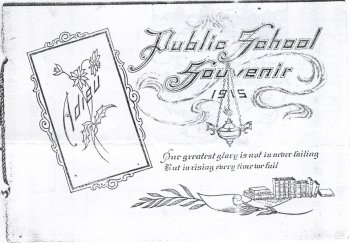 Public School
Souvenir
1915
Our greatest glory is not in never failing
But in rising every time we fail